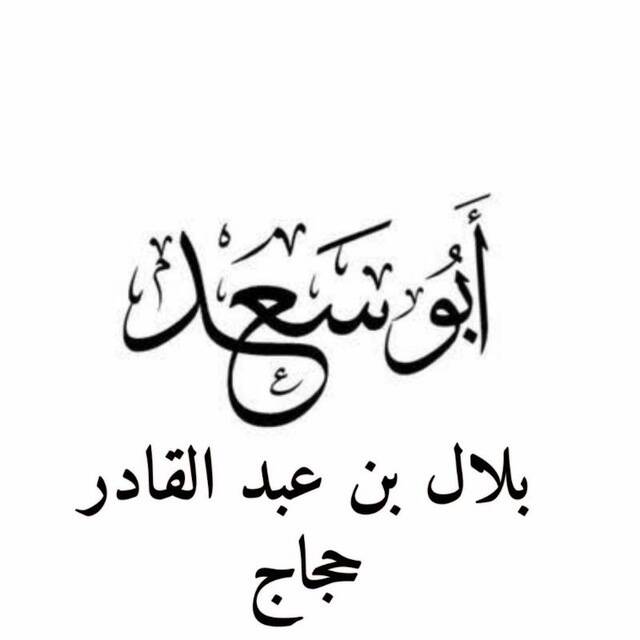 أَبُو سَعْد
بلال بن عبد القادر
حجاج